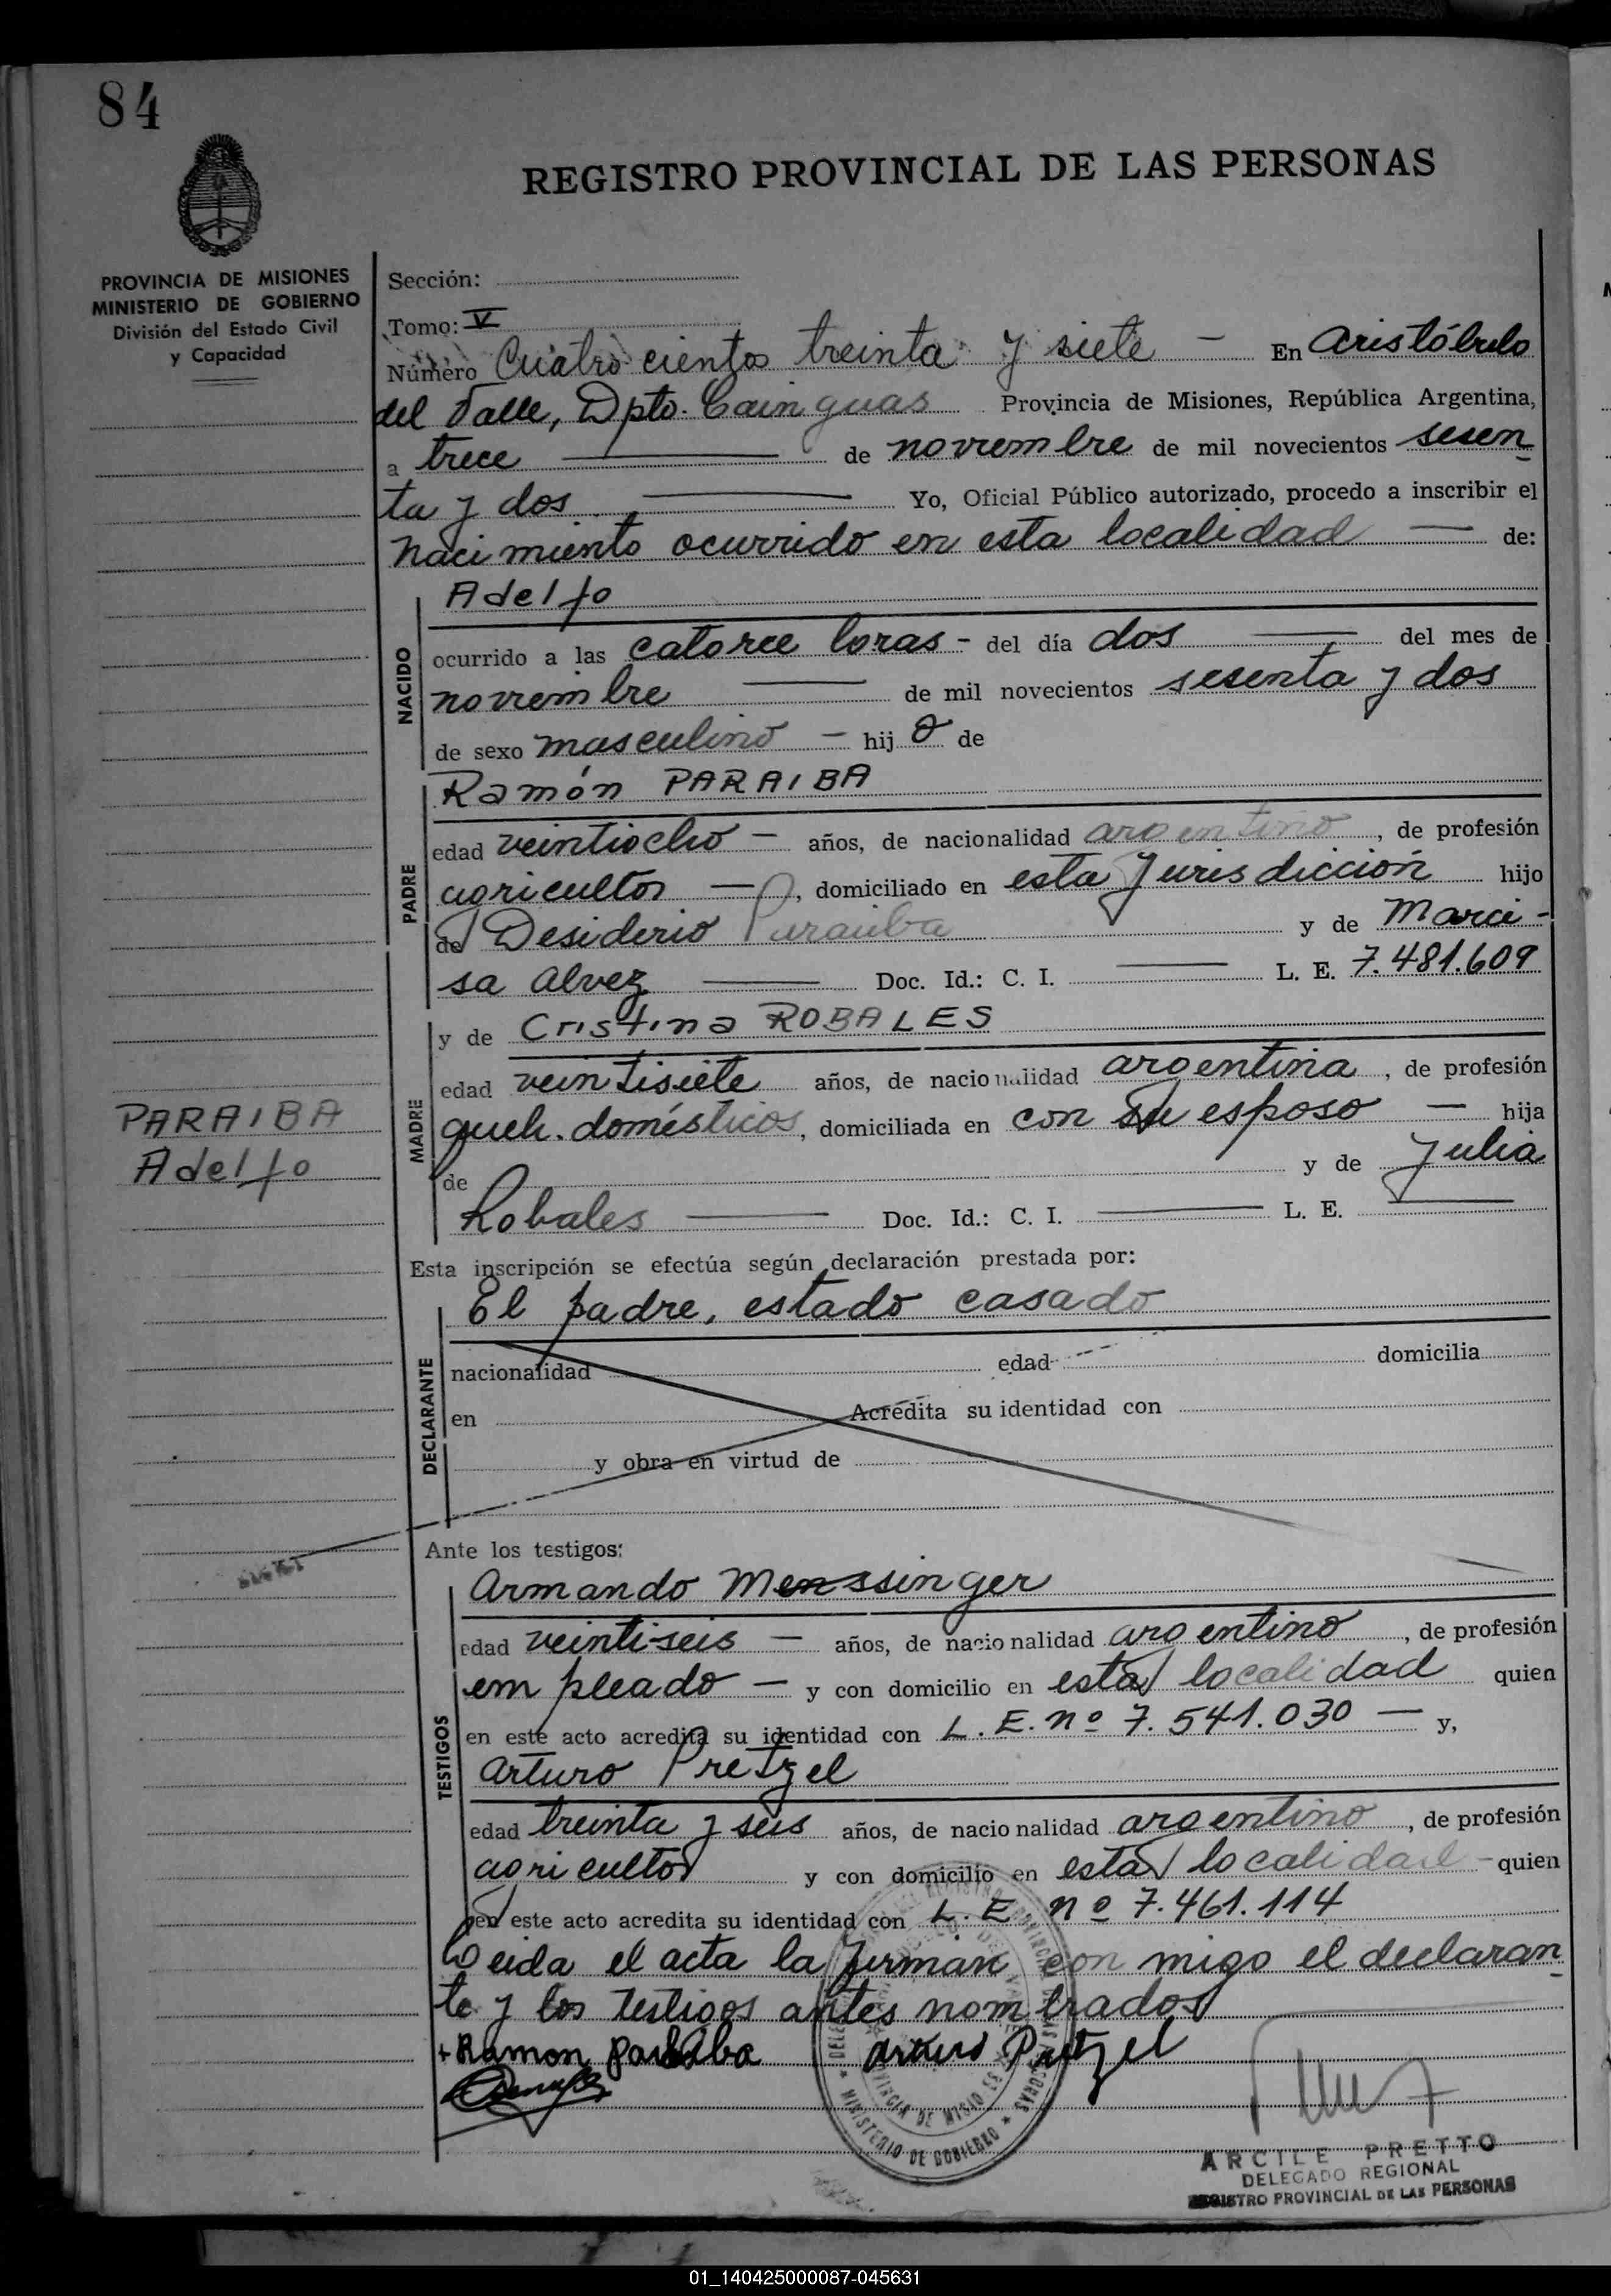 84
REGISTRO PROVINCIAL DE LAS PERSONAS
PROVINCIA DE MISIONES
MINISTERIO DE GOBIERNO
División del Estado Civil
y Capacidad
Sección:
Tomo: V
Número Cuatro cientos treinta y siete — En Aristóbulo
del Valle, Dpto. Cainguas Provincia de Misiones, República Argentina,
a trece — de noviembre de mil novecientos sesen
ta y dos — Yo, Oficial Público autorizado, procedo a inscribir el
nacimiento ocurrido en esta localidad — de:
NACIDO
Adelfo
ocurrido a las catorce horas - del día dos — del mes de
noviembre — de mil novecientos sesenta y dos
de sexo masculino — hijo de
PADRE
Ramón PARAIBA
edad veintiocho — años, de nacionalidad argentino, de profesión
agricultor —, domiciliado en esta Jurisdicción hijo
de Desiderio Paraiba y de Marci-
sa Alvez — Doc. Id.: C. I. — L. E. 7.481.609
MADRE
y de Cristina ROBALES
edad veintisiete años, de nacionalidad argentina, de profesión
queh. domésticos, domiciliada en con su esposo — hija
de y de Julia
Robales — Doc. Id.: C. I. — L. E. —
PARAIBA
Adelfo
Esta inscripción se efectúa según declaración prestada por:
DECLARANTE
El padre, estado casado
nacionalidad edad domicilia
en Acredita su identidad con
y obra en virtud de
Ante los testigos:
TESTIGOS
Armando Menssinger
edad veintiseis — años, de nacionalidad argentino, de profesión
empleado — y con domicilio en esta localidad quien
en este acto acredita su identidad con L. E. nº 7.541.030 — y,
Arturo Pretzel
edad treinta y seis años, de nacionalidad argentino, de profesión
agricultor y con domicilio en esta localidad - quien
en este acto acredita su identidad con L. E. nº 7.461.114
Leida el acta la firman con migo el declaran
te y los testigos antes nombrados
+Ramon paraiba Arturo Pretzel
MINISTERIO DE GOBIERNO
PROVINCIA DE MISIONES
ARCILE PRETTO
DELEGADO REGIONAL
REGISTRO PROVINCIAL DE LAS PERSONAS
01_140425000087-045631